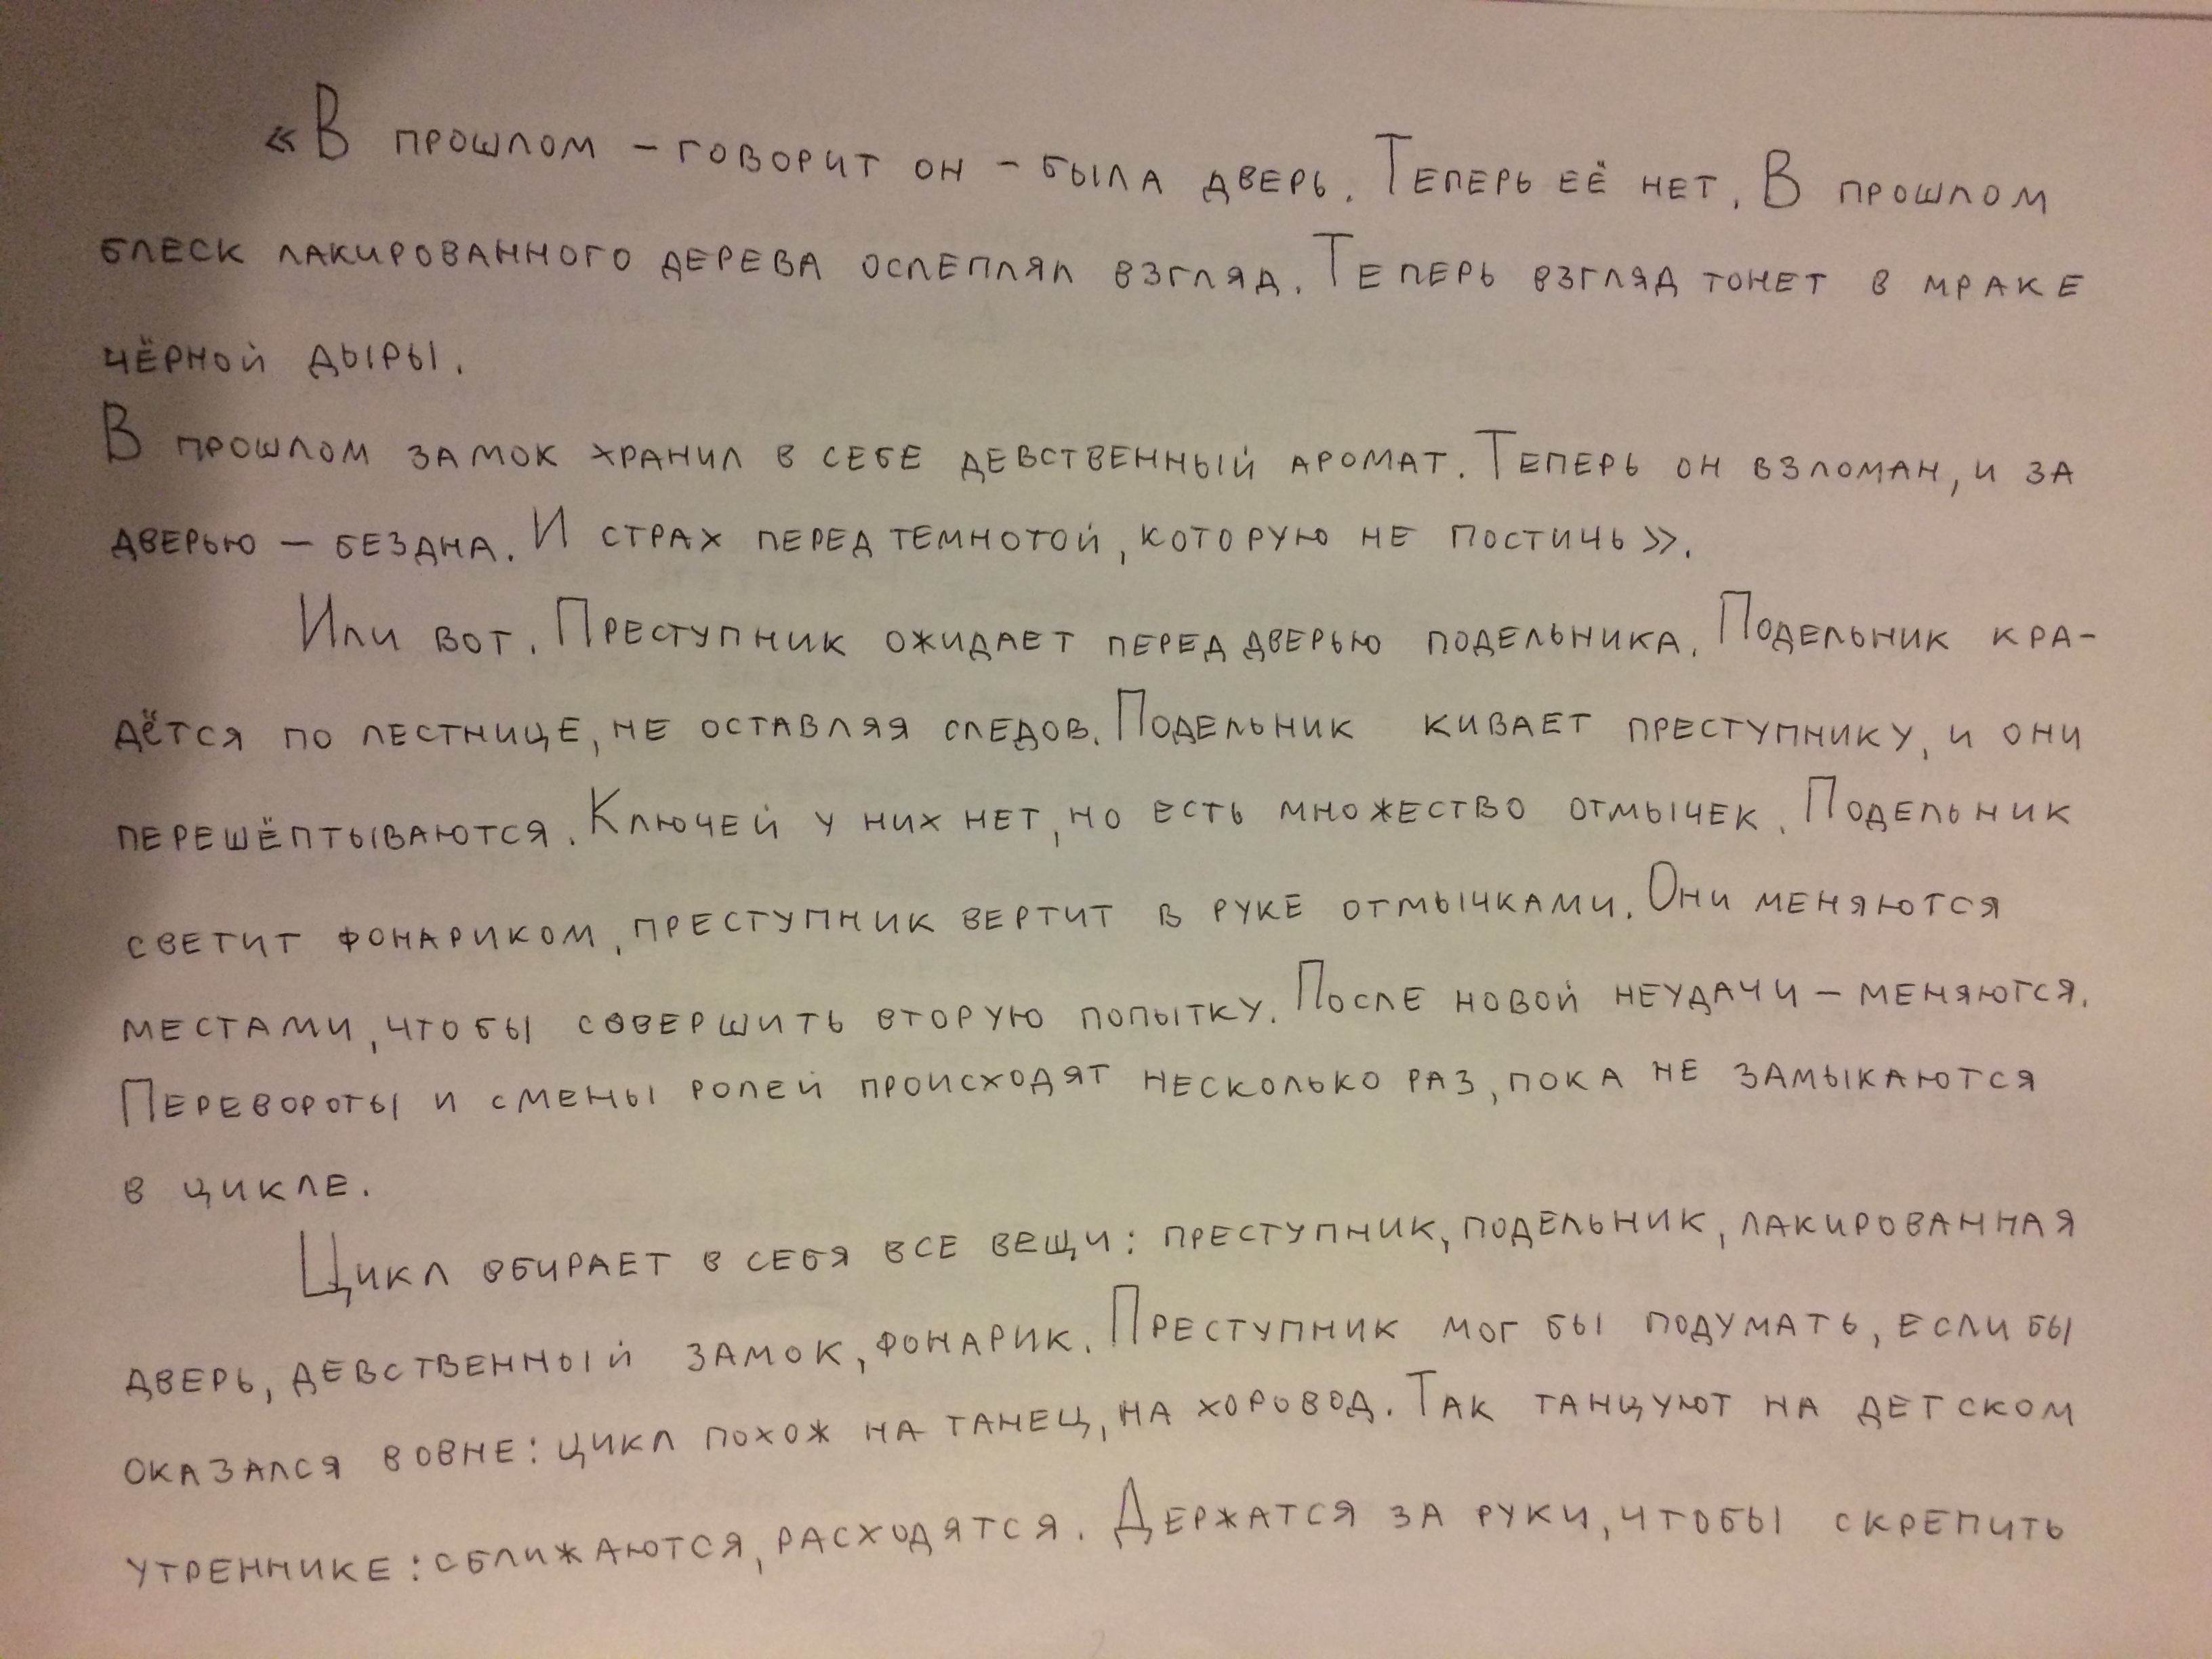 «В прошлом – говорит он – была дверь. Теперь её нет. В прошлом
блеск лакированного дерева ослеплял взгляд. Теперь взгляд тонет в мраке
чёрной дыры.
В прошлом замок хранил в себе девственный аромат. Теперь он взломан, и за
дверью – бездна. И страх перед темнотой, которую не постичь».
Или вот. Преступник ожидает перед дверью подельника. Подельник кра-
дётся по лестнице, не оставляя следов. Подельник кивает преступнику, и они
перешёптываются. Ключей у них нет, но есть множество отмычек. Подельник
светит фонариком, преступник вертит в руке отмычками. Они меняются
местами, чтобы совершить вторую попытку. После новой неудачи – меняются.
Перевороты и смены ролей происходят несколько раз, пока не замыкаются
в цикле.
Цикл вбирает в себя все вещи: преступник, подельник, лакированная
дверь, девственный замок, фонарик. Преступник мог бы подумать, если бы
оказался вовне: цикл похож на танец, на хоровод. Так танцуют на детском
утреннике: сближаются, расходятся. Держатся за руки, чтобы скрепить